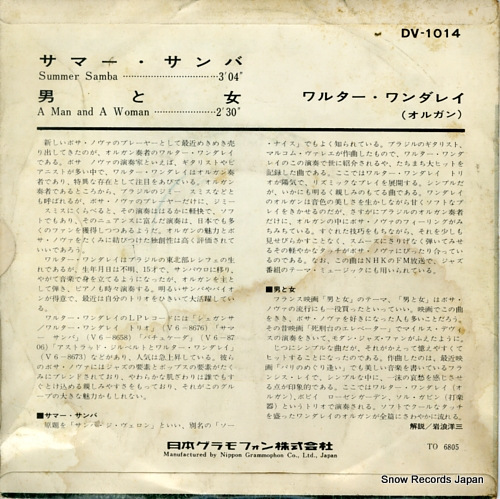 DV-1014
サマー・サンバ
Summer Samba ………………………3'04"
男と女
A Man and A Woman ………………2'30"
ワルター・ワンダレイ
(オルガン)
新しいボサ・ノヴァのプレーヤーとして最近めきめき売
り出してきたのが、オルガン奏者のワルター・ワンダレイ
である。ボサ・ノヴァの演奏家といえば、ギタリストやピ
アニストが多い中で、ワルター・ワンダレイはオルガン奏
者であり、特異な存在として注目をあびている。オルガン
奏者であるところから、ブラジルのジミー・スミスなどと
も呼ばれるが、ボサ・ノヴァのプレーヤーだけに、ジミー
・スミスにくらべると、その演奏ははるかに軽快で、ソフ
トでもあり、そのニュアンスに富んだ演奏は、日本でも多
くのファンを獲得しつつあるようだ。オルガンの魅力とボ
サ・ノヴァをたくみに結びつけた独創性は高く評価されて
いいであろう。
ワルター・ワンダレイはブラジルの東北部レシフェの生
れであるが、生年月日は不明、15才で、サンパウロに移り、
やがて音楽で身を立てるようになったが、オルガンを主と
して弾き、ピアノも時々演奏する。明るいサンバやバイオ
ンが得意で、最近は自分のトリオをひきいて大活躍してい
る。
ワルター・ワンダレイのLPレコードには「シュガンサ
/ワルター・ワンダレイ・トリオ」(V6-8676)「サマ
ー・サンバ」(V6-8658)「バキュケーダ」(V6-87
06)「アストラッド・ジルベルトとワルター・ワンダレイ」
(V6-8673)などがあり、人気は急上昇している。彼ら
のボサ・ノヴァにはジャズの要素とポップスの要素がたく
みにブレンドされており、やわらかな肌ざわりは誰でもす
ぐとけ込める親しみやすさをもっており、それがこのグルー
プの大きな魅力かもしれない。
■サマー・サンバ
原題を「サンバ・ジ・ヴェロン」といい、別名の「ソー
・ナイス」でもよく知られている。ブラジルのギタリスト、
マルコム・ヴァレエが作曲したもので、ワルター・ワンダ
レイのこの演奏で世に紹介されるや、たちまち大ヒットを
記録した曲である。ここではワルター・ワンダレイ トリ
オが陽気で、リズミックなプレイを展開する。シンプルだ
が、いかにも明るく親しみのもてる曲である。ワンダレイ
のオルガンは音色の美しさを生かしながら甘くソフトなプ
レイをきかせるのだが、さすがにブラジルのオルガン奏者
だけに、オルガンの中にもボサ・ノヴァのフィーリングがみ
ちみちている。すぐれた技巧をもちながら、それを少しも
見せびらかすことなく、スムースにさりげなく弾いてみせ
るその軽やかなタッチがボサ・ノヴァにぴったり合ってい
るのである。なお、この曲はNHKのFM放送で、ジャズ
番組のテーマ・ミュージックにも用いられている。
■男と女
フランス映画「男と女」のテーマ、「男と女」はボサ・ノ
ヴァの流行にも一役買ったといっていい。映画でこの曲
をきき、ボサ・ノヴァを好きになった人も多いことだろう。
その昔映画「死刑台のエレベーター」でマイルス・デヴィ
スの演奏をきいて、モダン・ジャズ・ファンがふえたように。
じつにシンプルな曲だが、それがかえって憶えやすくて
ヒットすることになったのである。作曲したのは、最近映
画「パリのめぐり逢い」でも美しい音楽を書いているフラ
ンシス・レイで、シンプルな中に、一沫の哀愁を感じさせ
る点が印象的である。ここではワルター・ワンダレイ(オ
ルガン)、ボビイ・ローゼンガーデン、ソル・ガビン(打楽
器)というトリオで演奏される。ソフトでクールなタッチ
を盛ったワンダレイのオルガンが全篇にさわやかに流れる。
解説/岩浪洋三
日本グラモフォン株式会社
Manufactured by Nippon Grammophon Co., Ltd., Japan
TO 6805
Snow Records Japan
www.snowrecords.jp